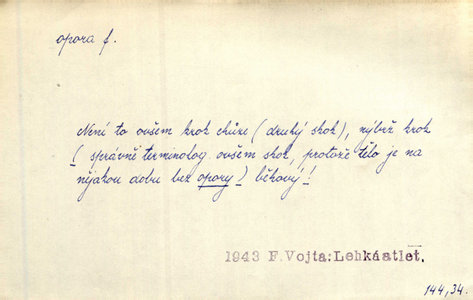 opora f.
Není to ovšem krok chůze (druhý skok), nýbrž krok
( správně terminolog. ovšem skok, protože tělo je na
nějakou dobu bez opory ) běhový!
1943 F.Vojta:Lehkáatlet.
144,34.